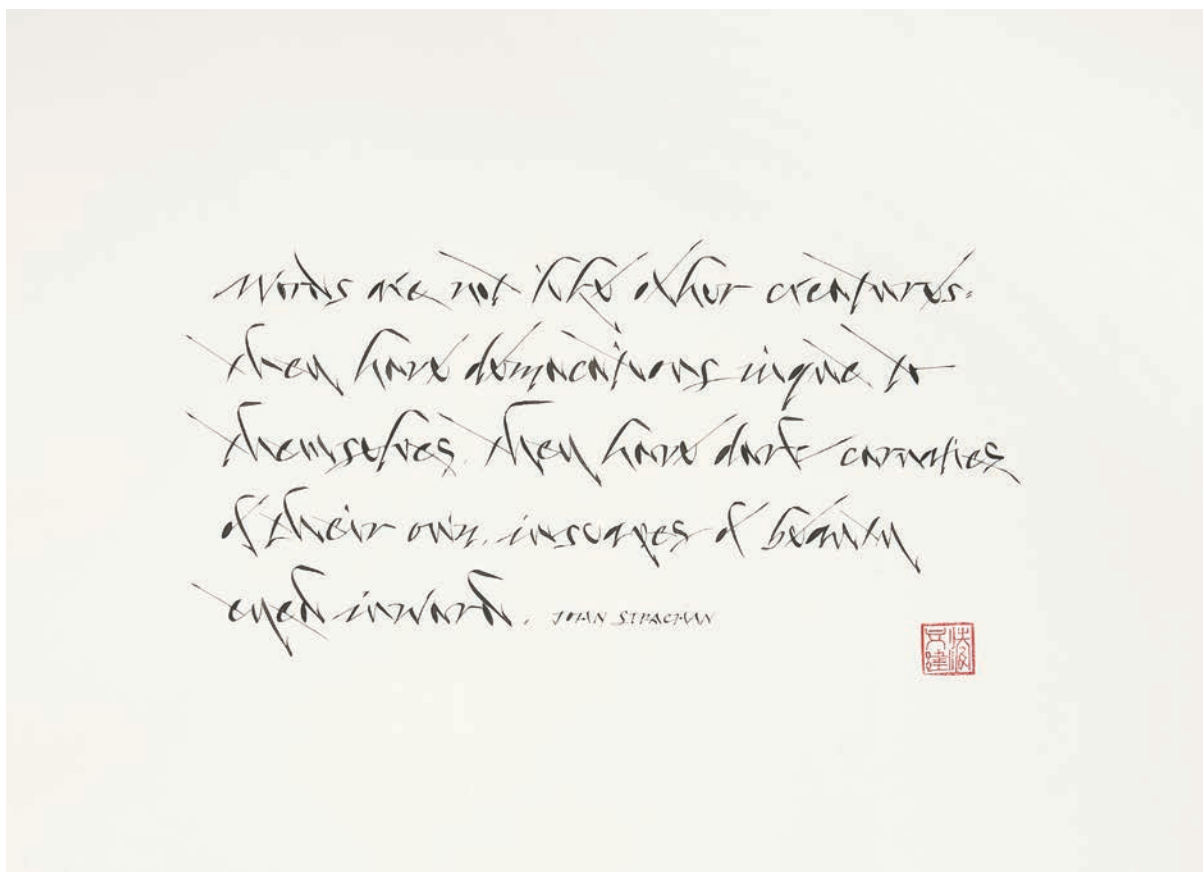 Words are not like other creatures:
they have domications unique to
themselves. they have dark carnaties
of their own. inscapes of beauty
eyed inward. JOHN STRACHAN